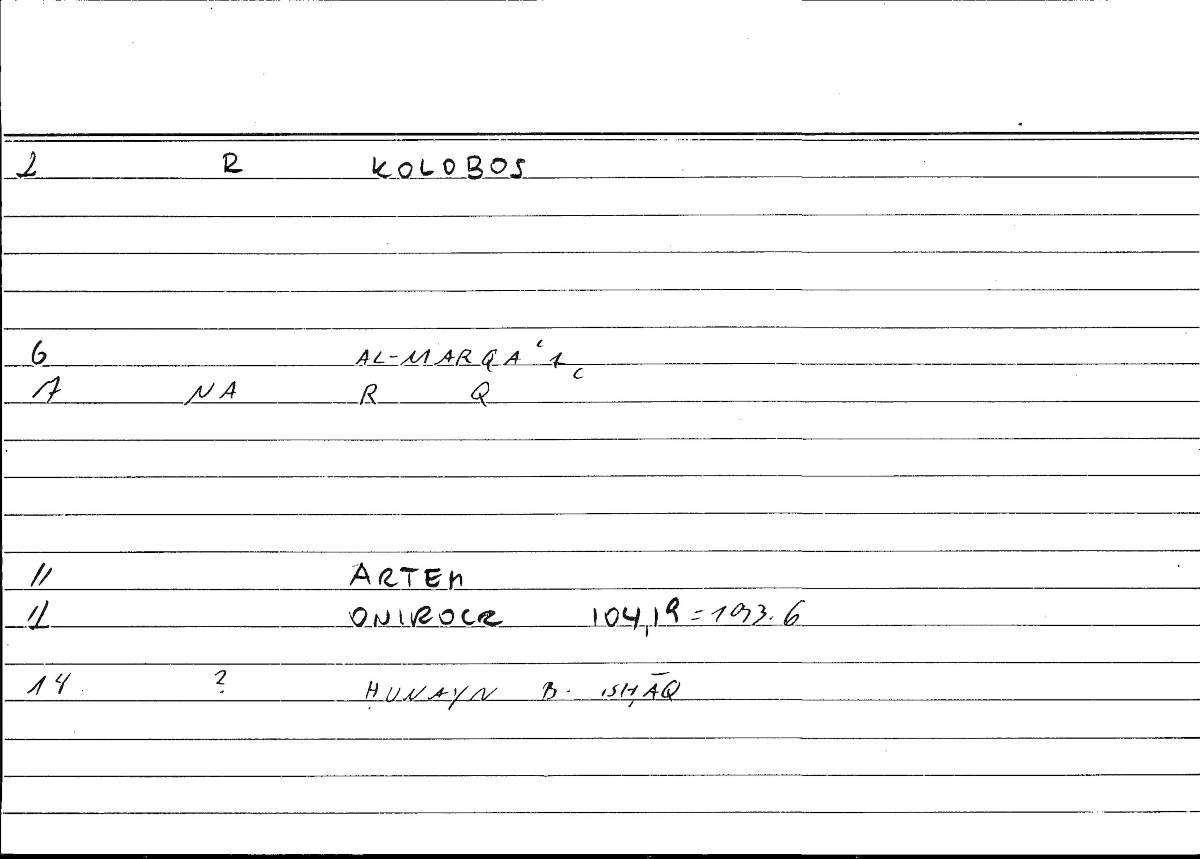 1 R KOLOBOS
6 AL-MARQAʿ1
7 NA R Q
11 ARTEM
12 ONIROCR 104,19 = 193.6
14. ? ḤUNAYN B. ISḤĀQ